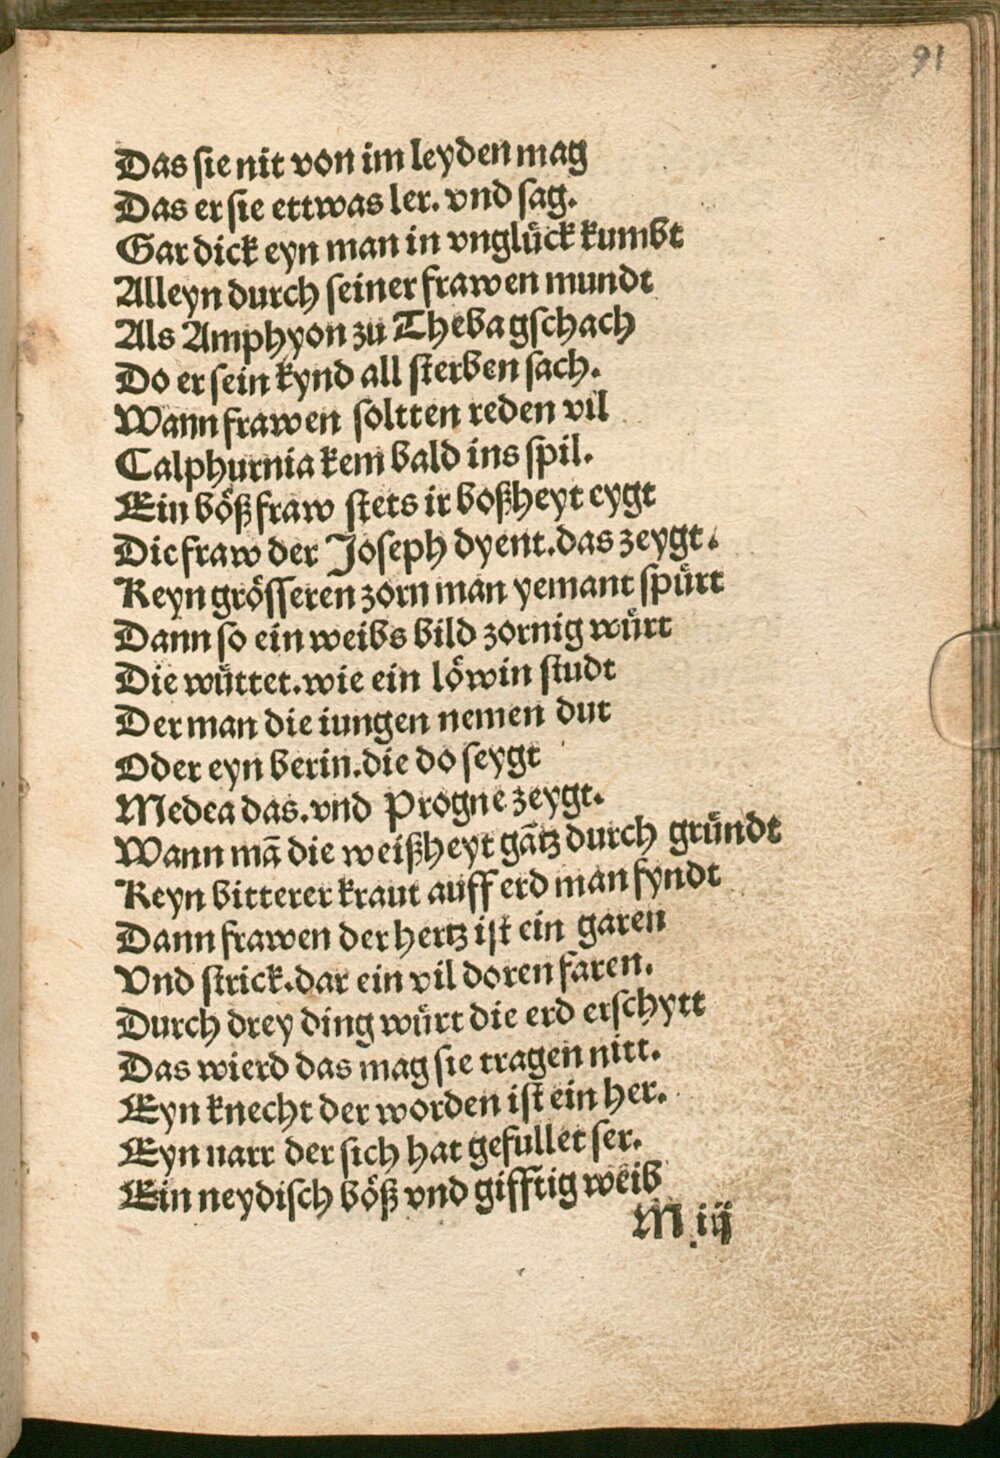 91
Das sie nit von im leyden mag
Das er sie ettwas ler. vnd sag.
Gar dick eyn man in vnglück kumbt
Alleyn durch seiner frawen mundt
Als Amphyon zu Theba gschach
Do er sein kynd all sterben sach.
Wann frawen soltten reden vil
Calphurnia kem bald ins spil.
Ein böß fraw stets ir boßheyt eygt
Die fraw der Joseph dyent. das zeygt.
Keyn grösseren zorn man yemant spürt
Dann so ein weibs bild zornig würt
Die wüttet. wie ein löwin studt
Der man die iungen nemen dut
Oder eyn berin. die do seygt
Medea das. vnd Progne zeygt.
Wann mã die weißheyt gãtz durch gründt
Keyn bitterer kraut auff erd man fyndt
Dann frawen der hertz ist ein garen
Vnd strick. dar ein vil doren faren.
Durch drey ding würt die erd erschytt
Das wierd das mag sie tragen nitt.
Eyn knecht der worden ist ein her.
Eyn narr der sich hat gefullet ser.
Ein neydisch böß vnd gifftig weib
M iij